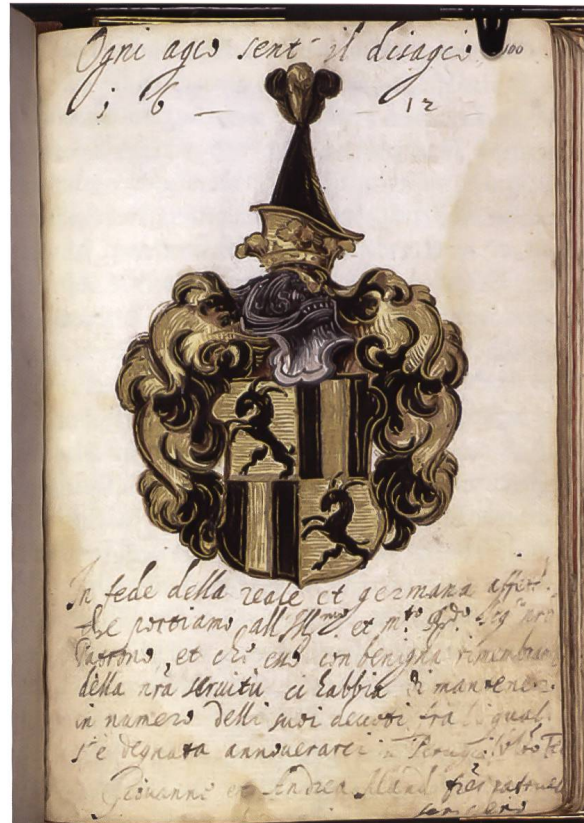 Ogni agio sent' il disagio
100
i 6 12
In fede della reale et germana affett
che portiamo all' Ill.mo et m.to sig.r nro
Patrono, et ch' esso con benigna rimembran
della nrã servitù ci habbia di mantene
in numero delli suoi devoti fra li qual
s'è degnata annoverarci in Perugia
Giovanne et Andrea